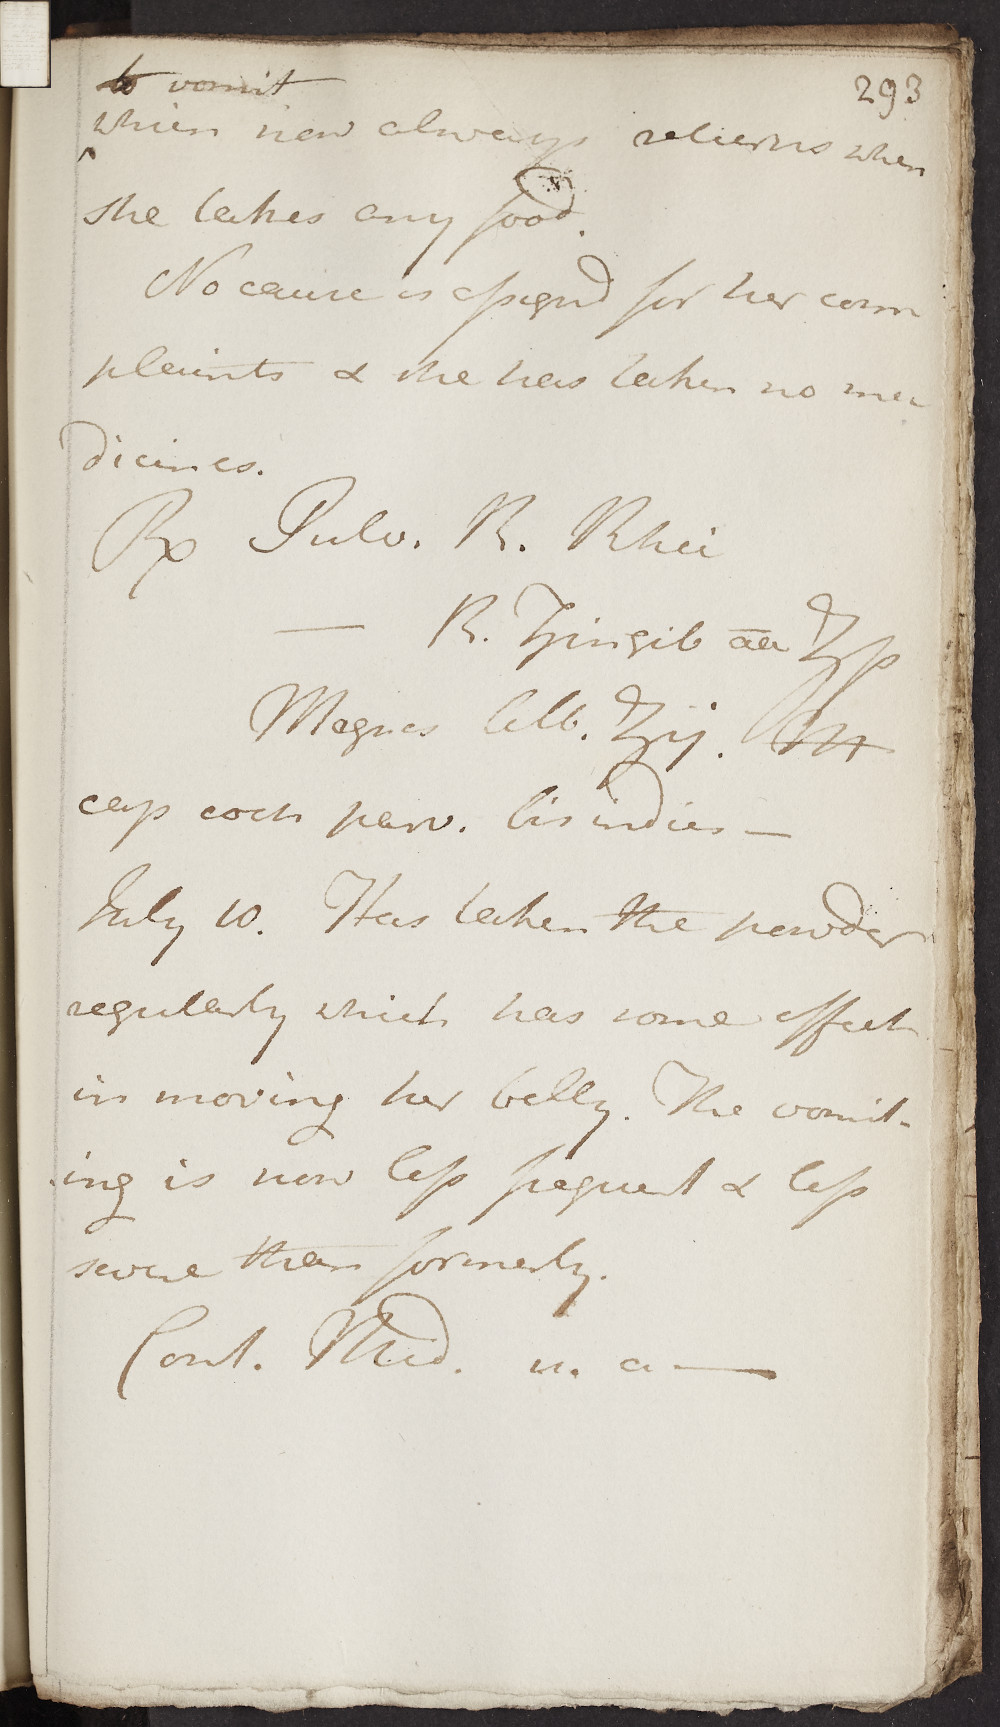 293
to vomit
which now always returns when
she takes any food.
No cause is assignd for her com
plaints & she has taken no me
dicines.
Rx Pulv. R. Rhei
— R. Zingib āā ʒß
Magnes alb. ʒij. M
cap coch parv. bis indies —
July 10. Has taken the powder
regularly which has some effect
in moving her belly. The vomit-
ing is now less frequent & less
severe than formerly.
Cont. Med. u. a —